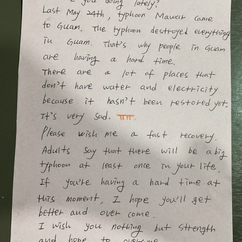 you doing lately?
Last May 24th, typhoon Mawar came
to Guam. The typhoon destroyed everything
in Guam. That's why people in Guam
are having a hard time.
There are a lot of places that
don't have water and electricity
because it hasn't been restored yet.
It's very sad. ㅠㅠ
Please wish me a fast recovery.
Adults say that there will be a big
typhoon at least once in your life.
If you're having a hard time at
this moment, I hope you'll get
better and over come.
I wish you nothing but strength
and hope to